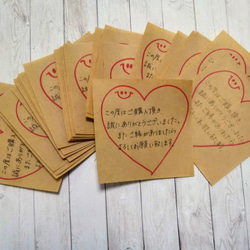 この度はご購入頂き
誠にありがとうございました。
またご縁がありましたら
よろしくお願い致します